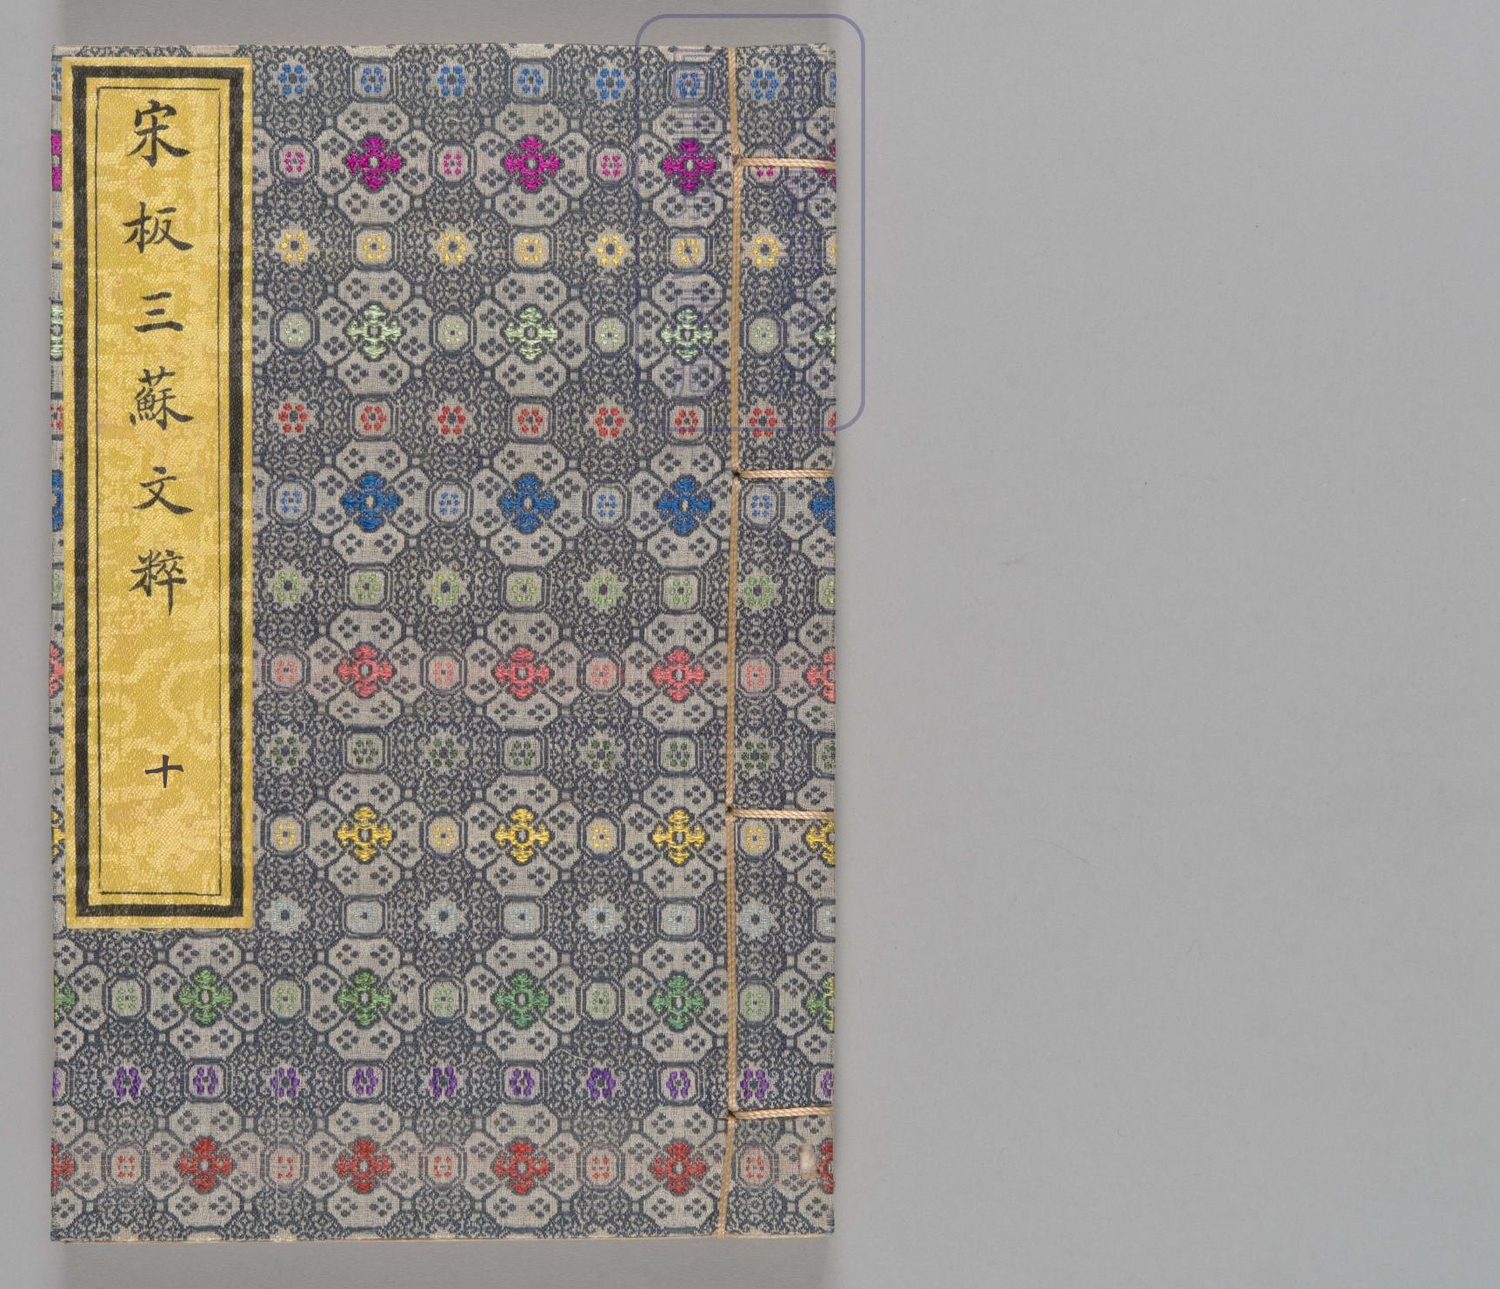 宋板三蘇文粹 十